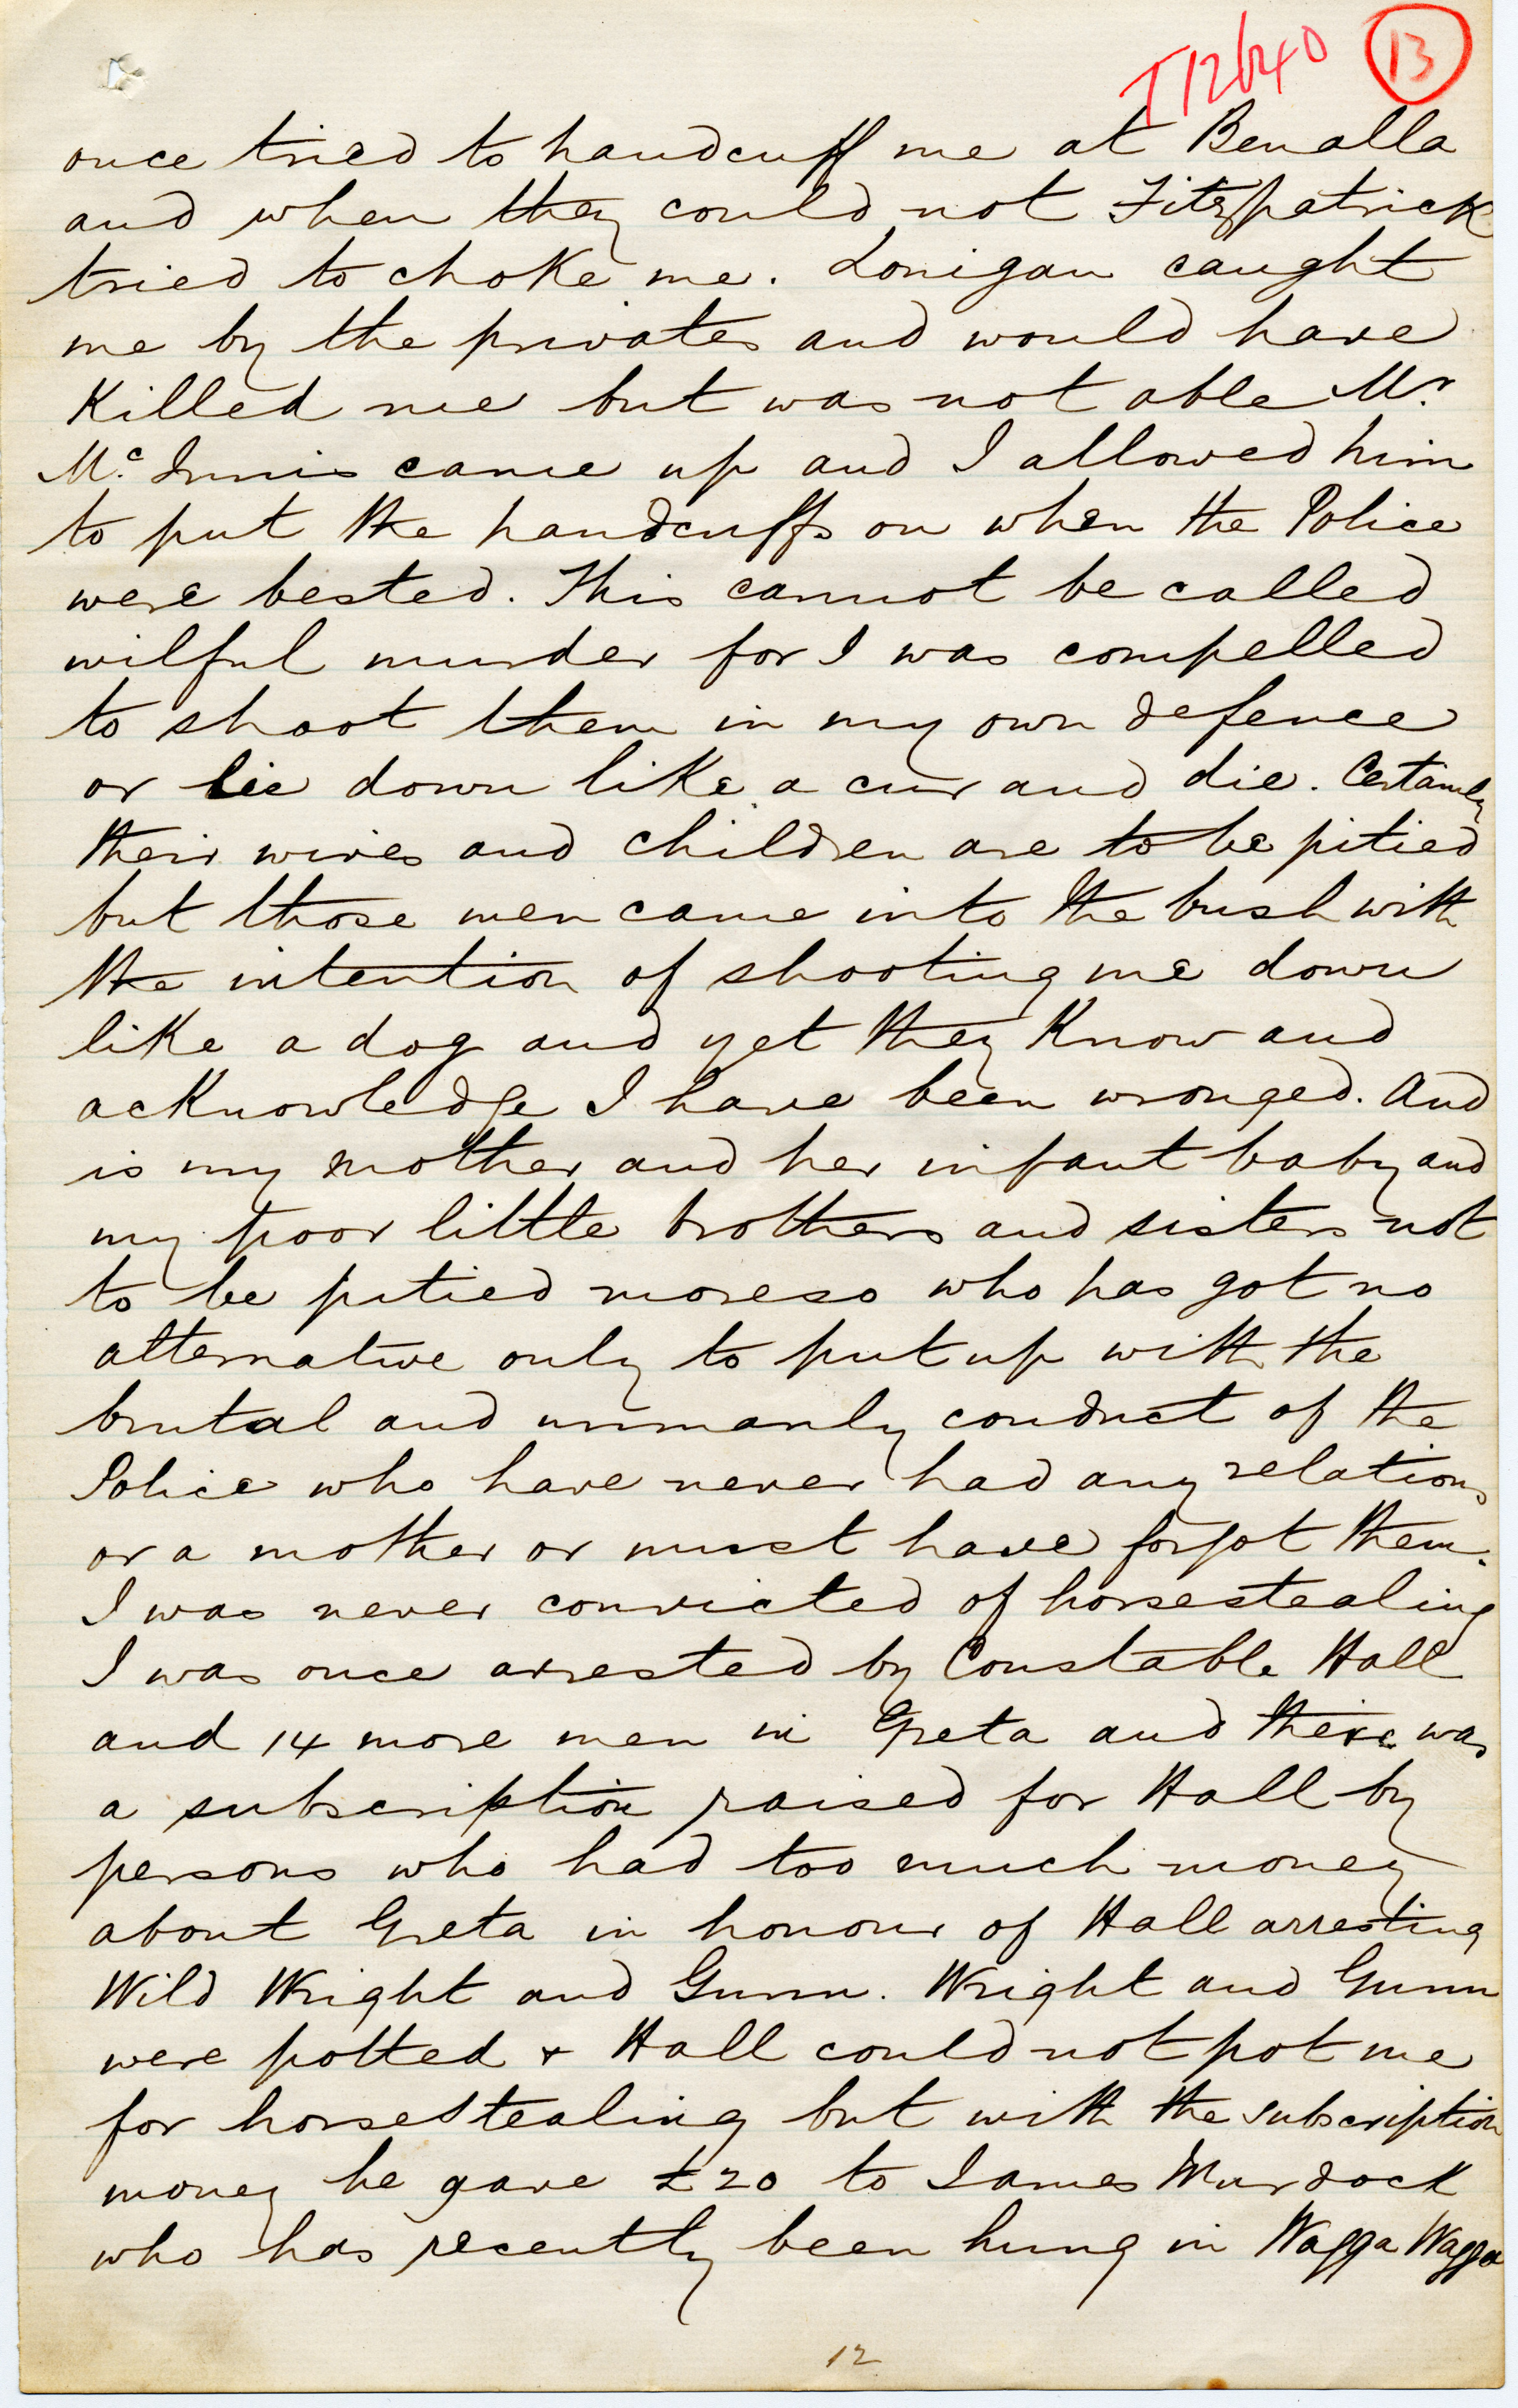 T12640 13
once tried to handcuff me at Benalla
and when they could not Fitzpatrick
tried to choke me. Lonigan caught
me by the privates and would have
killed me but was not able Mr.
Mc. Innis came up and I allowed him
to put the handcuffs on when the Police
were bested. This cannot be called
wilful murder for I was compelled
to shoot them in my own defence
or lie down like a cur and die. Certainly
their wives and children are to be pitied
but those men came into the bush with
the intention of shooting me down
like a dog and yet they know and
acknowledge I have been wronged. And
is my mother and her infant baby and
my poor little brothers and sisters not
to be pitied moreso who has got no
alternative only to put up with the
brutal and unmanly conduct of the
Police who have never had any relations
or a mother or must have forgot them.
I was never convicted of horsestealing
I was once arrested by Constable Hall
and 14 more men in Greta and there was
a subscription raised for Hall by
persons who had too much money
about Greta in honour of Hall arresting
Wild Wright and Gunn. Wright and Gunn
were potted & Hall could not pot me
for horsestealing but with the subscription
money he gave £20 to James Murdock
who has recently been hung in Wagga Wagga
12